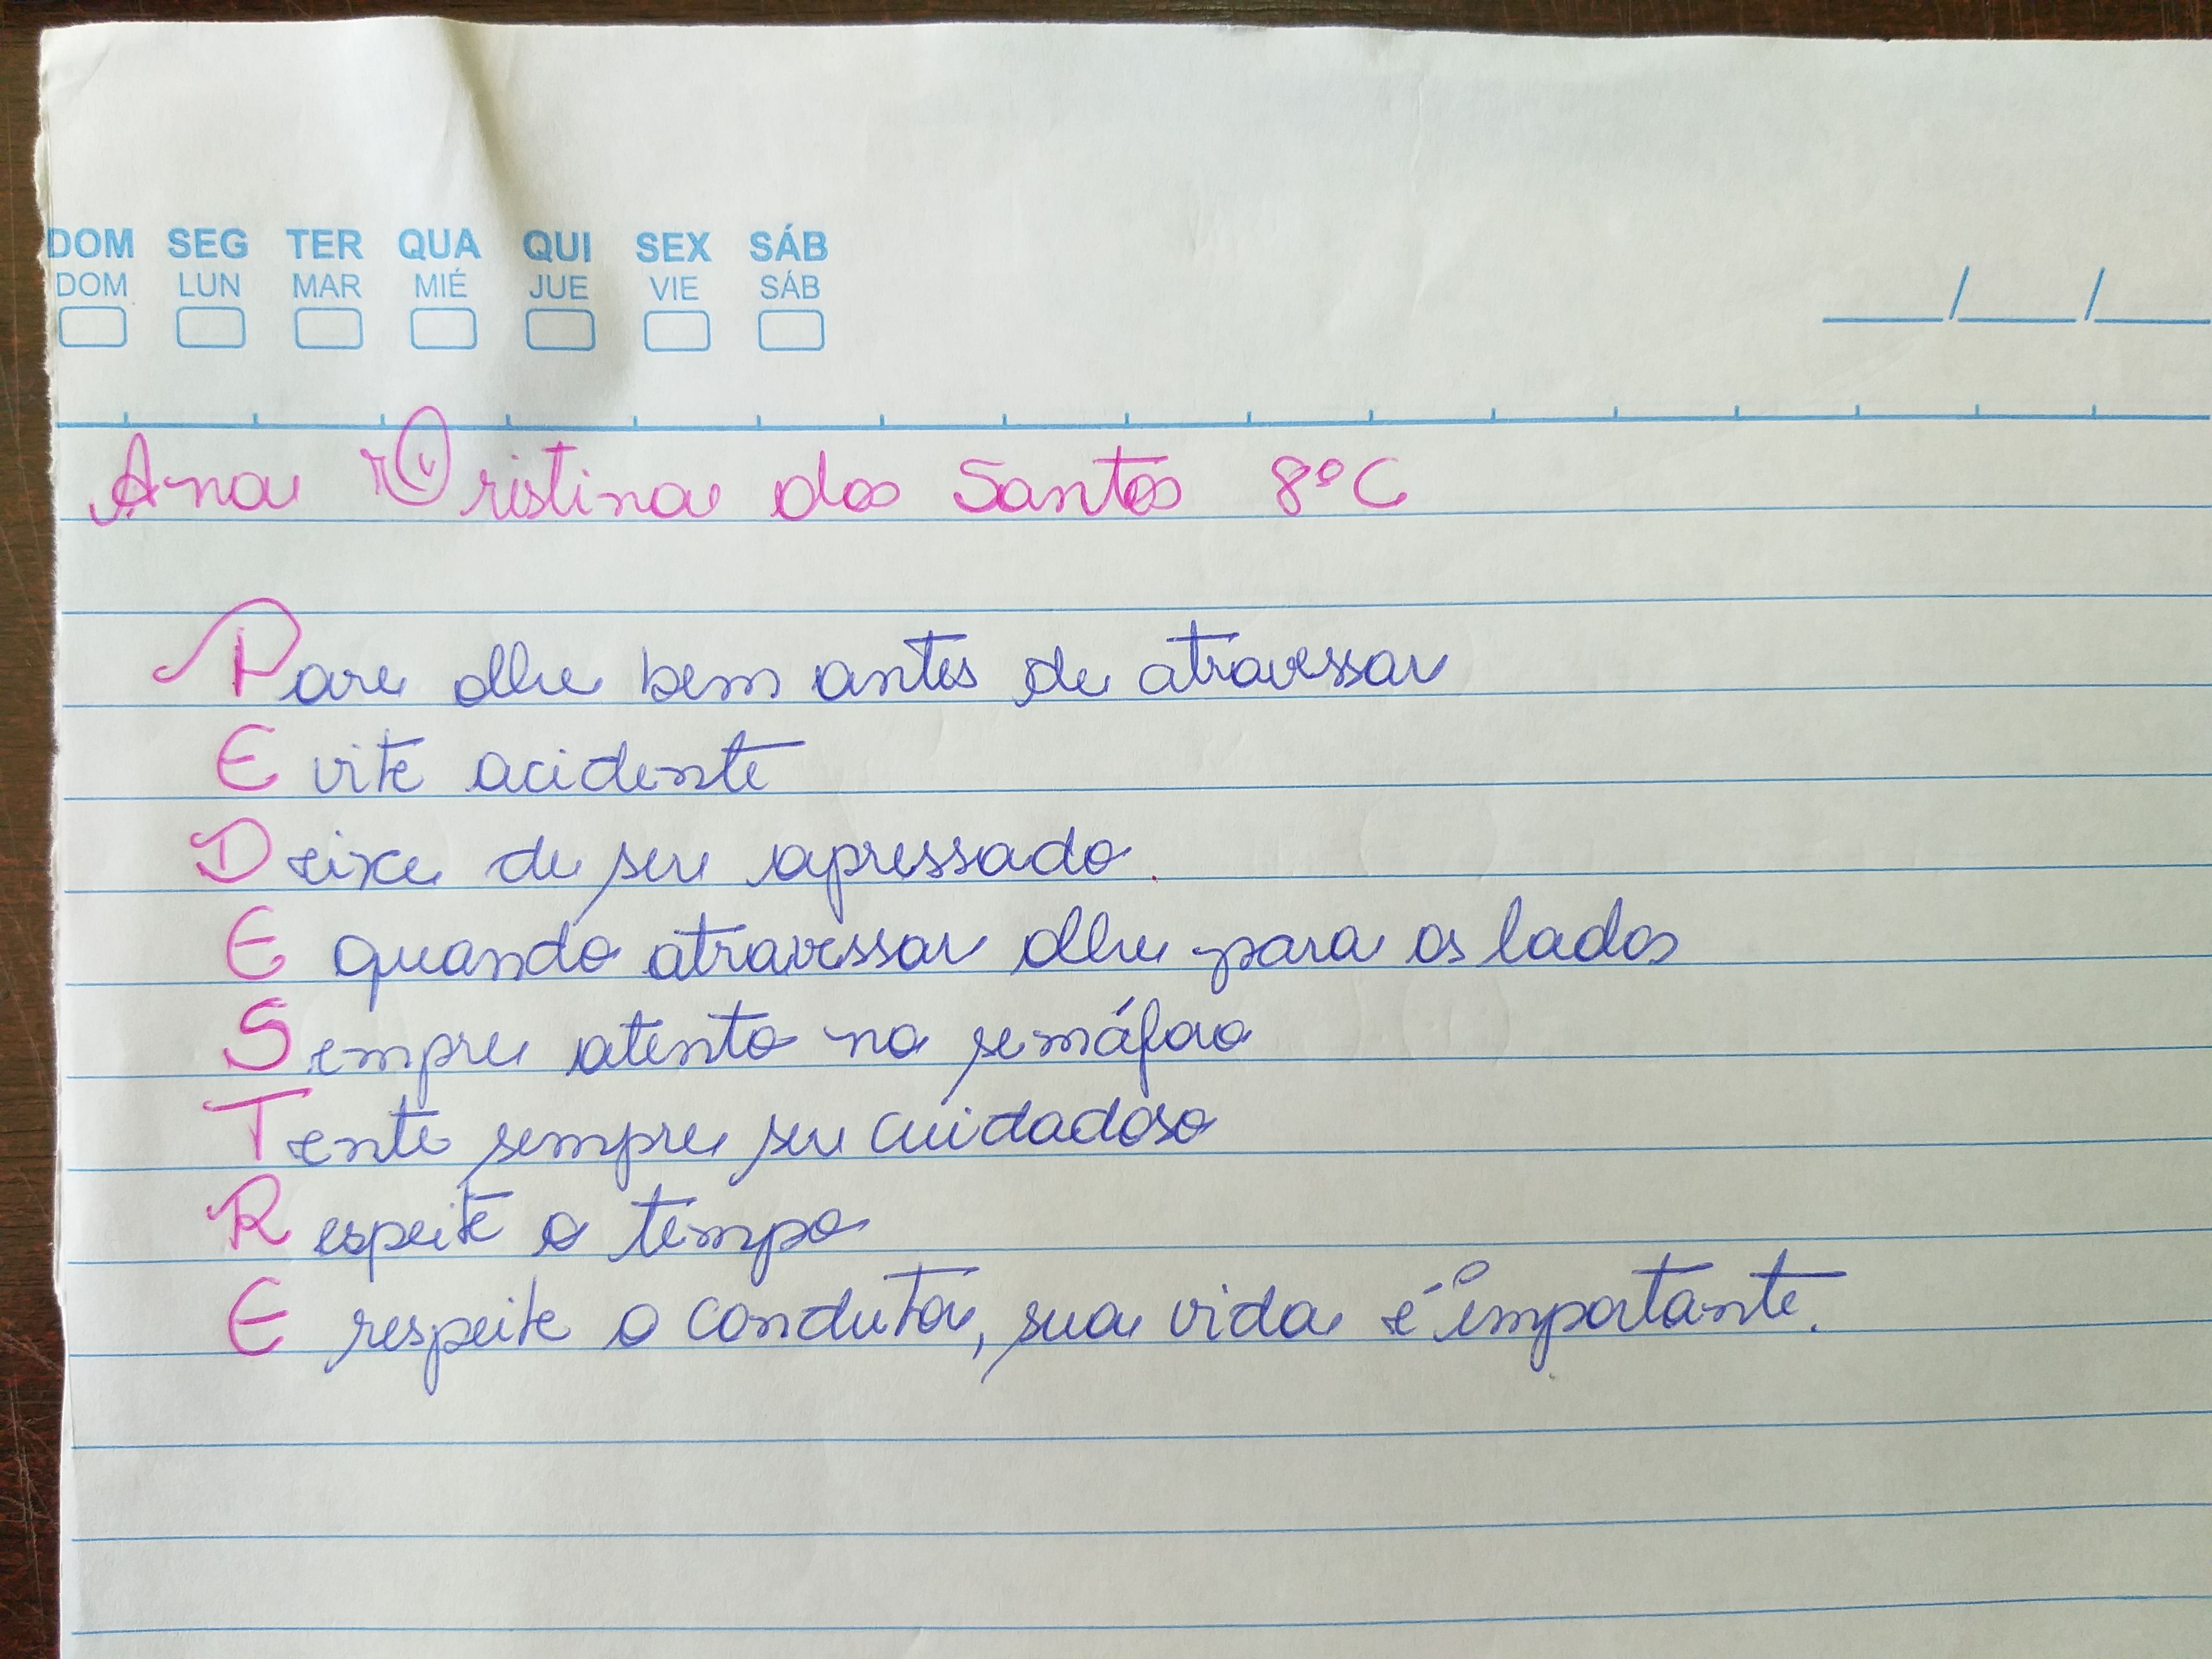 DOM SEG TER QUA QUI SEX SÁB
DOM LUN MAR MIÉ JUE VIE SÁB
___/___/___
Ana Cristina dos Santos 8º C
Pare olhe bem antes de atravessar
Evite acidente
Deixe de ser apressado.
E quando atravessar olhe para os lados
Sempre atento no semáforo
Tente sempre ser cuidadoso
Respeite o tempo
E respeite o condutor, sua vida é importante.